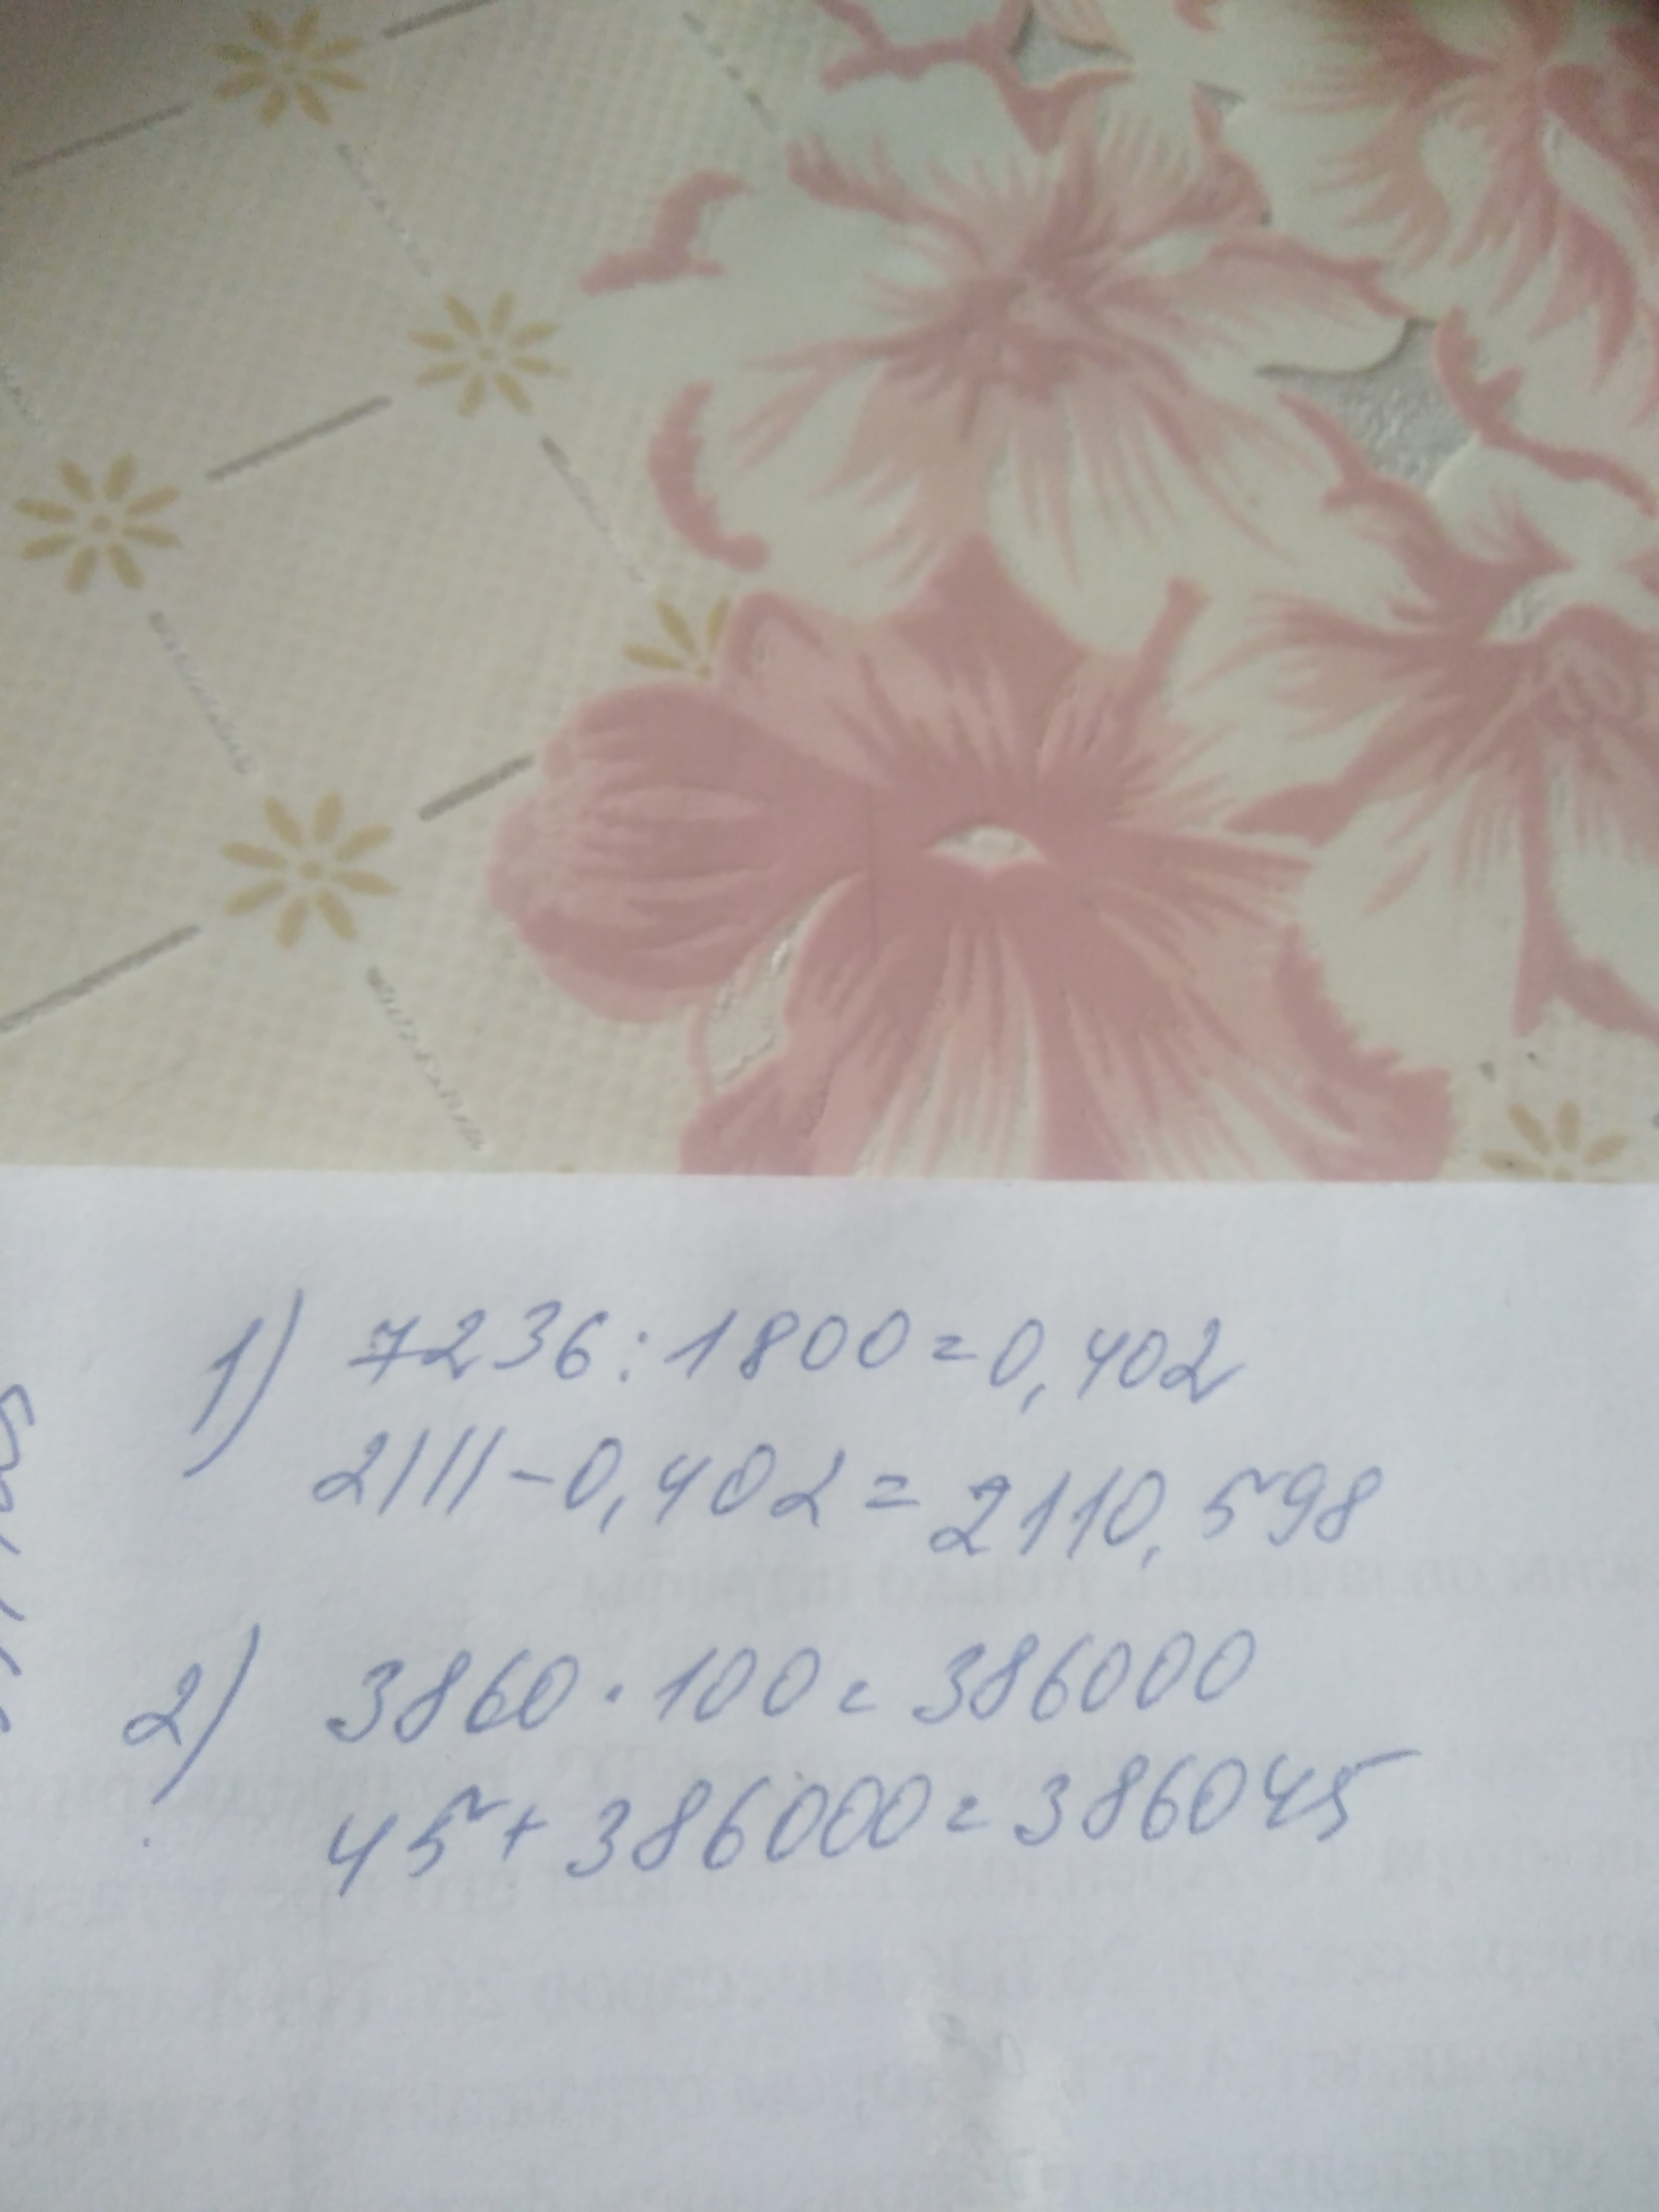 1) 7236:1800=0,402
2111-0,402=2110,598
2) 3860·100=386000
45+386000=386045